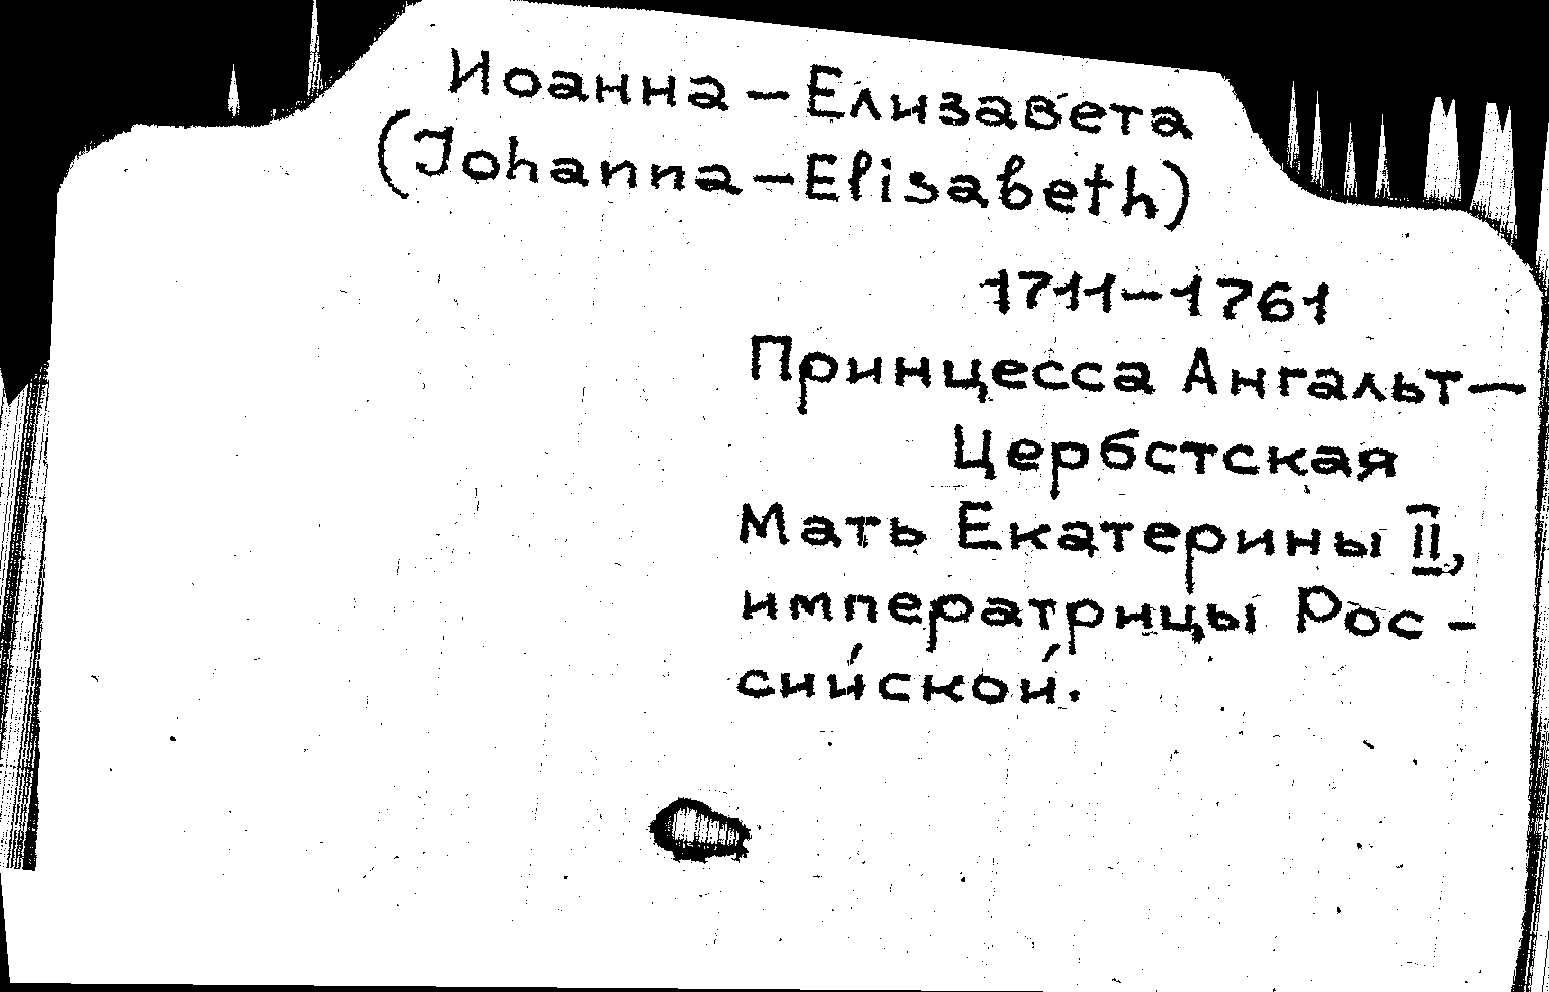 Иоанна-Елизавета
(Johanna-Elisabeth)
1711-1761
Принцесса Ангальт-
Цербстская
Мать Екатерины II,
императрицы Рос-
сийской.